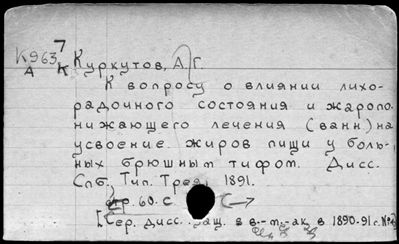 К963 7
А К Куркутов, А. Г.
К вопросу о влиянии лихо-
радочного состояния и жаропо-
нижающего лечения (ванн) на
усвоение жиров пищи у боль-
ных брюшным тифом. Дисс.
Спб. Тип. Трея, 1891.
стр. 60. С
[Сер. дисс. защ. в в.-м.-ак. в 1890-91 г.